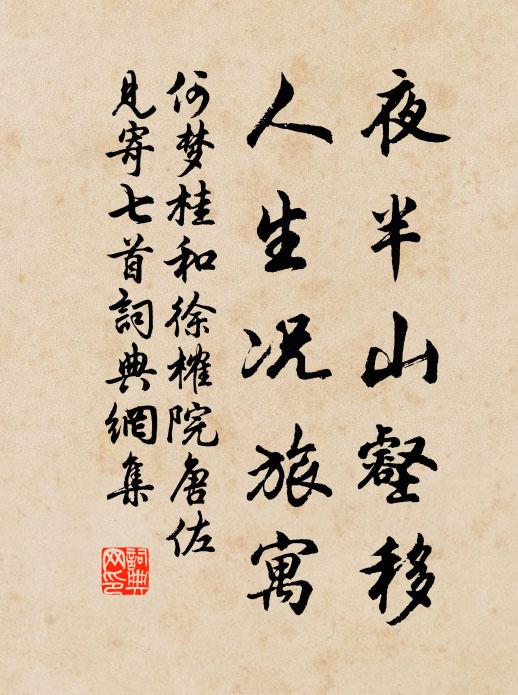 夜半山壑移
人生况旅寓
何梦桂和徐榷院唐佐
见寄七首詞典網集
詞典网印